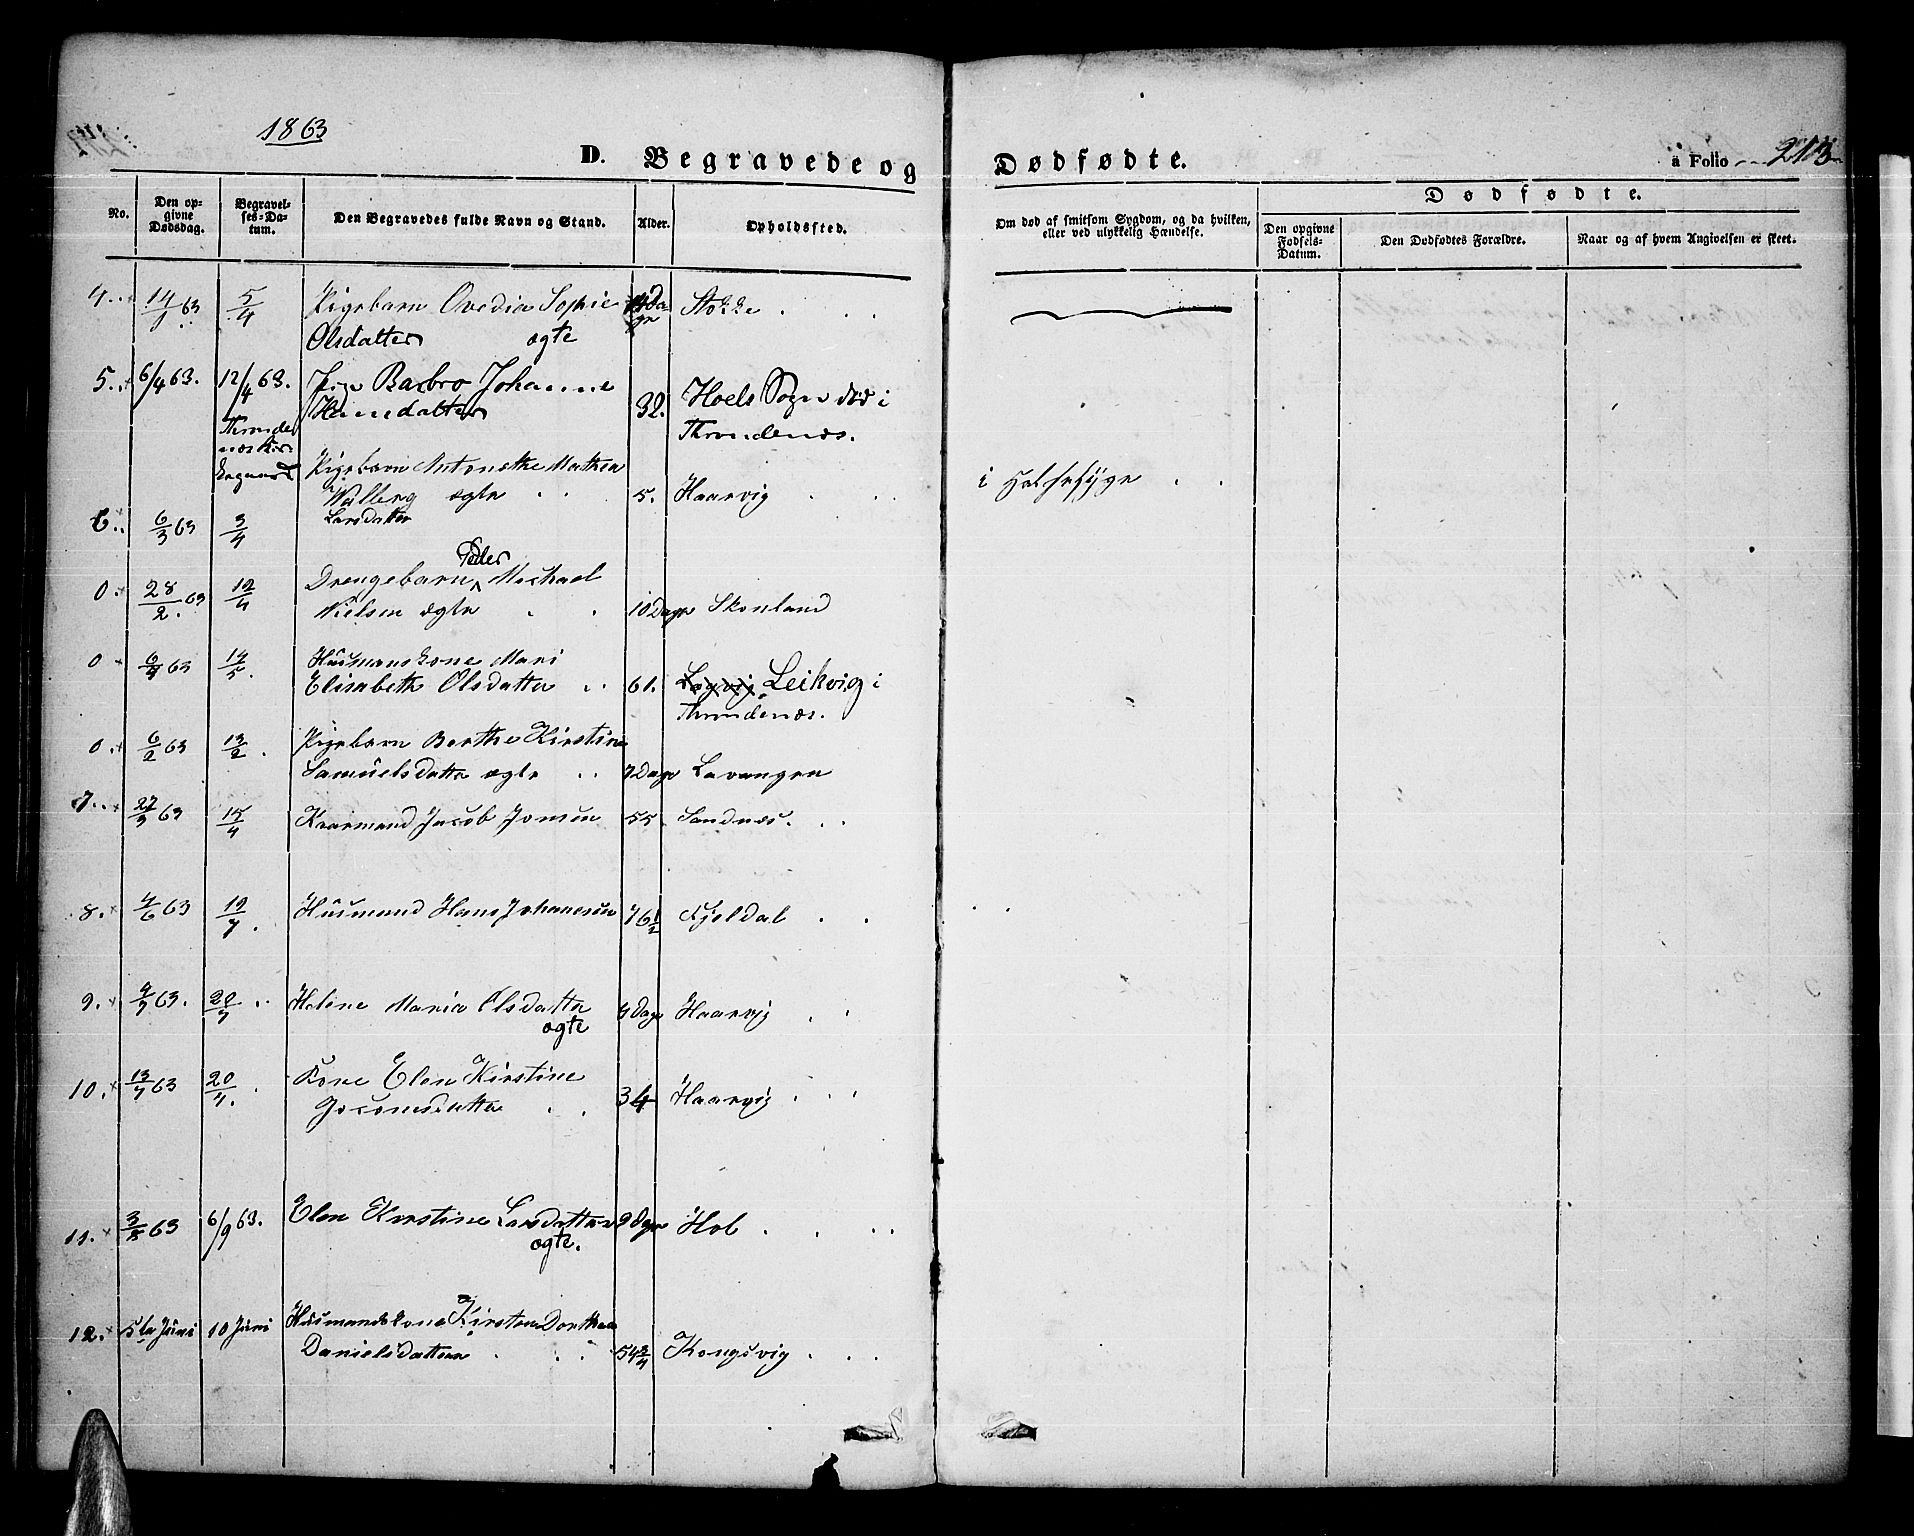 1863
D. Begravede og Dødfødte.
à Folio 213
Dødfødte.
No. Den opgivne Dødsdag. Begravelses-Datum. Den Begravedes fulde Navn og Stand. Alder. Opholdssted. Om død af smitsom Sygdom, og da hvilken, eller ved ulykkelig Hændelse. Den opgivne Fødsels-Datum. Den Dødfødtes Forældre. Naar og af hvem Angivelsen er skeet.
4. 5/4 Pigebarn Ovedia Sophie
Olsdatter ægte
5. 6/4 63. 12/4 63. Pige Barbro Johanne
32. Hoels Sogn død i
Throndenæs.
Pigebarn Antonethe Mathea
Walberg ægte 5. Haarvig i Halssyge
6. 6/3 63 3/4 Larsdatter
Peder
0. 28/2 63 12/4 Drengebarn Michael
Nielsen ægte 10 Dage Skonland
0 6/4 63 14/5 Husmanskone Mari
Elisabeth Olsdatter 61. Leikvig i
Throndenæs.
0. 6/2 63 Pigebarn Berthe Kirstine
Samuelsdatter ægte 7 Dage Lavangen
7. 27/3 63 15/4 Jacob Jonsen 55 Sandnæs.
8. 4/6 63 19/7 Husmand Hans Johannesen 76 1/2 Fjeldal
9. 9/7 63. 20/7 Helene Maria Olsdatter
ægte Dage Haarvig
10. 13/7 63 20/7. Kone Elen Kirstine
34 Haarvig
11. 3/8 63 6/9 63. Elen Kirstine Larsdatter 9 Dage Hol
ægte.
12. 5te Juni 10 Juni Husmandskone Kirsten Dorthea
Danielsdatter 54 3/4 Kongsvig